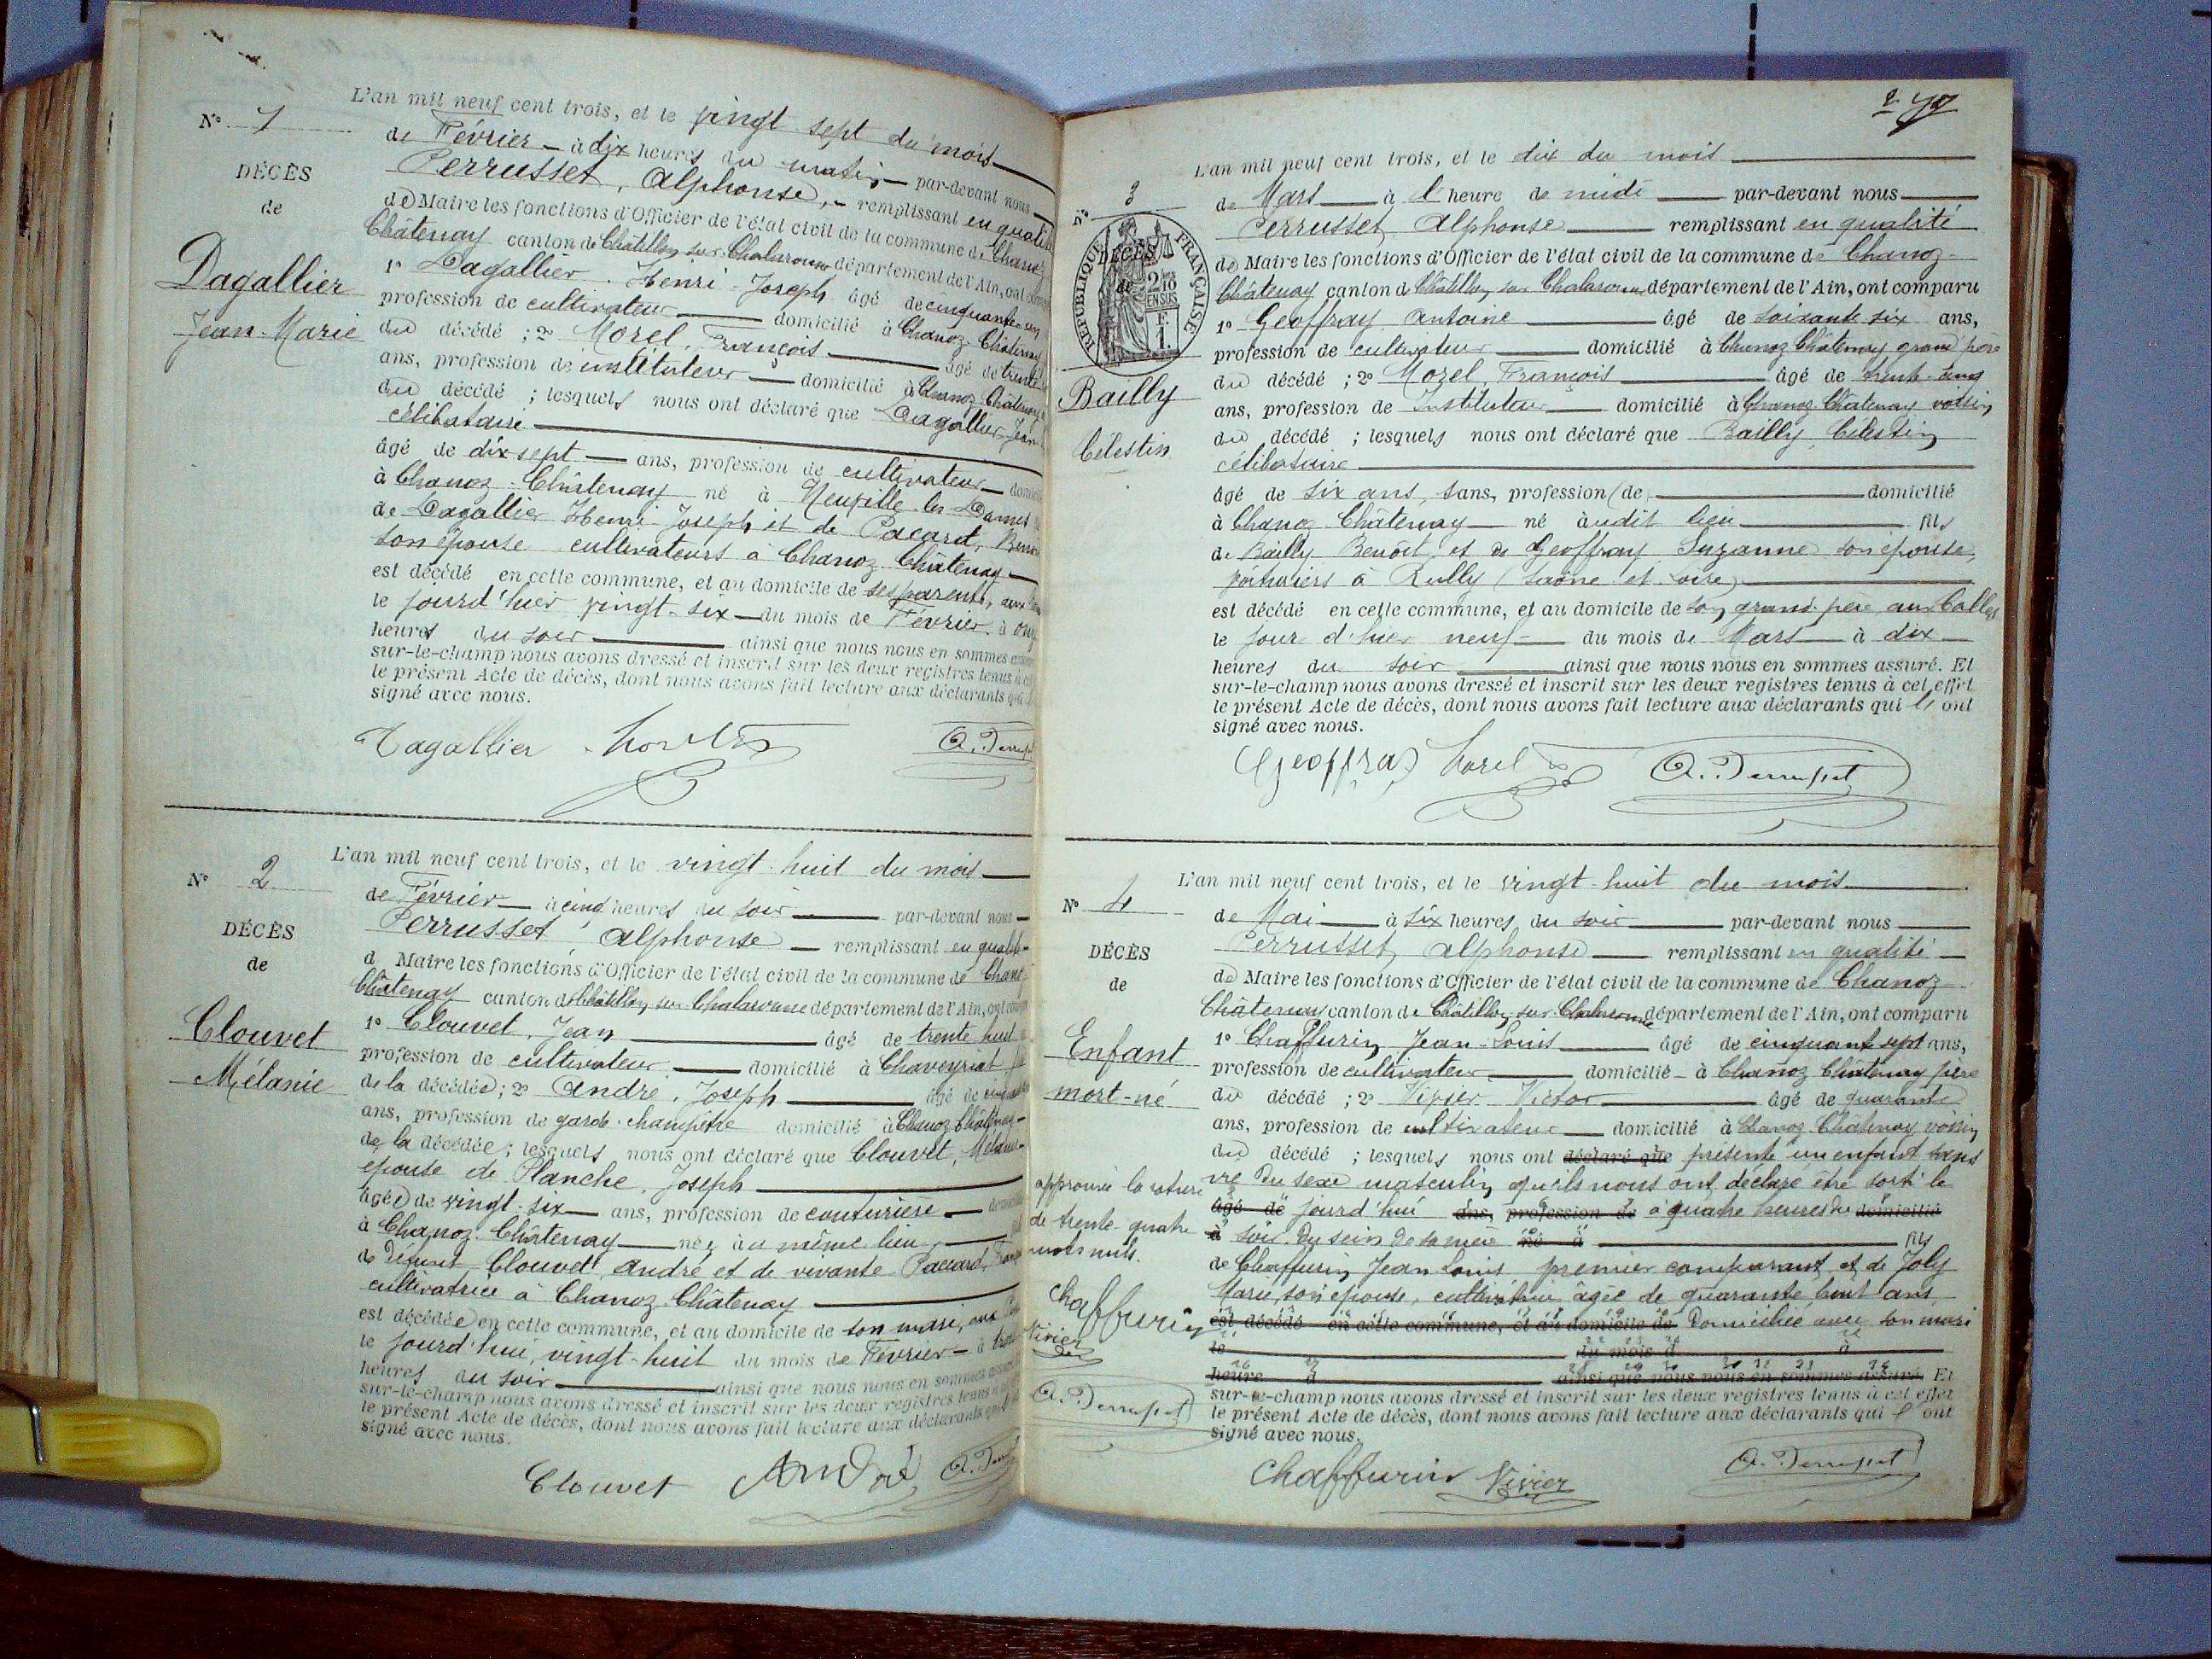 N° 1
DÉCÈS
de
Dagallier
Jean-Marie
L'an mil neuf cent trois, et le vingt sept du mois
de Février à dix heures du matin par-devant nous
Perrusset, Alphonse, remplissant en qualité
de Maire les fonctions d'Officier de l'état civil de la commune de Chanoz
Châtenay canton de Châtillon sur Chalaronne département de l'Ain, ont
1° Dagallier Henri-Joseph âgé de cinquante-un
profession de cultivateur domicilié à Chanoz Châtenay
du décédé ; 2° Morel, François âgé de trente
ans, profession de instituteur domicilié à Chanoz Châtenay
du décédé ; lesquels nous ont déclaré que Dagallier Jean
célibataire
âgé de dix sept ans, profession de cultivateur
à Chanoz-Châtenay né à Neuville les Dames
de Dagallier Henri-Joseph et de Pacard,
son épouse cultivateurs à Chanoz Châtenay
est décédé en cette commune, et au domicile de ses parents, aux
le jourd'hier vingt-six du mois de Février à onze
heures du soir ainsi que nous nous en sommes
sur-le-champ nous avons dressé et inscrit sur les deux registres tenus à
le présent Acte de décès, dont nous avons fait lecture aux déclarants qui
signé avec nous.
Dagallier Morel A. Perrusset
N° 2
DÉCÈS
de
Clouvet
Mélanie
L'an mil neuf cent trois, et le vingt-huit du mois
de Février à cinq heures du soir par-devant nous
Perrusset, Alphonse remplissant en qualité
d Maire les fonctions d'Officier de l'état civil de la commune de Chanoz
Châtenay canton de Châtillon sur Chalaronne département de l'Ain, ont
1° Clouvet, Jean âgé de trente huit
profession de cultivateur domicilié à Chaveyriat
de la décédée ; 2° André, Joseph âgé de
ans, profession de garde-champêtre domicilié à Chanoz Châtenay
de la décédée ; lesquels nous ont déclaré que Clouvet, Mélanie
épouse de Planche, Joseph
âgée de vingt-six ans, profession de couturière
à Chanoz-Châtenay née au même lieu
de défunt Clouvet André et de vivante Paccard,
cultivatrice à Chanoz-Châtenay
est décédée en cette commune, et au domicile de son mari, aux
le jourd'hui, vingt-huit du mois de Février à
heures du soir ainsi que nous nous en sommes
sur-le-champ nous avons dressé et inscrit sur les deux registres tenus à
le présent Acte de décès, dont nous avons fait lecture aux déclarants qui
signé avec nous.
Clouvet André A. Perrusset
2
N° 3
RÉPUBLIQUE FRANÇAISE
DÉCÈS
de
2/10 EN SUS
Bailly
Célestin
L'an mil neuf cent trois, et le dix du mois
de Mars à l'heure de midi par-devant nous
Perrusset Alphonse remplissant en qualité
de Maire les fonctions d'Officier de l'état civil de la commune de Chanoz-
Châtenay canton de Châtillon sur Chalaronne département de l'Ain, ont comparu
1° Geoffray Antoine âgé de soixante six ans,
profession de cultivateur domicilié à Chanoz Châtenay grand père
du décédé ; 2° Morel, François âgé de trente-cinq
ans, profession de Instituteur domicilié à Chanoz Châtenay voisin
du décédé ; lesquels nous ont déclaré que Bailly Célestin
célibataire
âgé de six ans, sans, profession (de domicilié
à Chanoz Châtenay né audit lieu fils
de Bailly Benoît et de Geoffray Suzanne son épouse,
à Rully (Saône et Loire)
est décédé en cette commune, et au domicile de son grand-père, aux
le jour d'hier neuf du mois de Mars à dix
heures du soir ainsi que nous nous en sommes assuré. Et
sur-le-champ nous avons dressé et inscrit sur les deux registres tenus à cet effet
le présent Acte de décès, dont nous avons fait lecture aux déclarants qui l'ont
signé avec nous.
Geoffray Morel A. Perrusset
N° 4
DÉCÈS
de
Enfant
mort-né
L'an mil neuf cent trois, et le vingt-huit du mois
de Mai à six heures du soir par-devant nous
Perrusset Alphonse remplissant en qualité
de Maire les fonctions d'Officier de l'état civil de la commune de Chanoz
Châtenay canton de Châtillon sur Chalaronne département de l'Ain, ont comparu
1° Chaffurin Jean-Louis âgé de cinquante sept ans,
profession de cultivateur domicilié à Chanoz Châtenay père
du décédé ; 2° Vivier Victor âgé de quarante
ans, profession de cultivateur domicilié à Chanoz Châtenay voisin
du décédé ; lesquels nous ont déclaré que présenté un enfant sans
vie du sexe masculin qu'ils nous ont déclaré être sorti le
âgé de jourd'hui ans, profession de à quatre heures du domicilié
à soir du sein de sa mère né à fils
de Chaffurin Jean Louis premier comparant et de Joly
Marie, son épouse, cultivatrice âgée de quarante huit ans
est décédé en cette commune, et au domicile de Domiciliée avec son mari
le du mois d à
heure d ainsi que nous nous en sommes assuré. Et
sur-le-champ nous avons dressé et inscrit sur les deux registres tenus à cet effet
le présent Acte de décès, dont nous avons fait lecture aux déclarants qui l'ont
signé avec nous.
Chaffurin Vivier A. Perrusset
approuvé la rature
de trente-quatre
mots nuls.
Chaffurin
Vivier
A. Perrusset